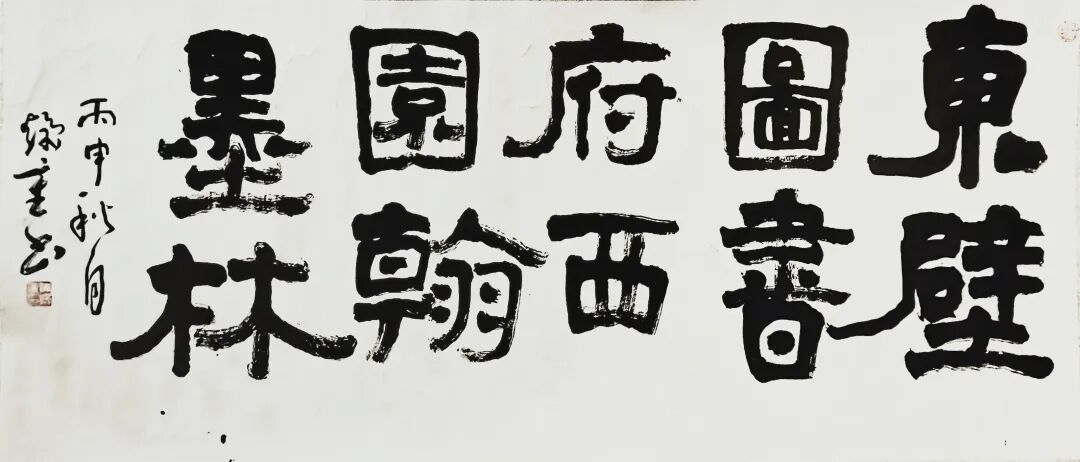 東壁
圖書
府西
園翰
墨林
丙申秋月